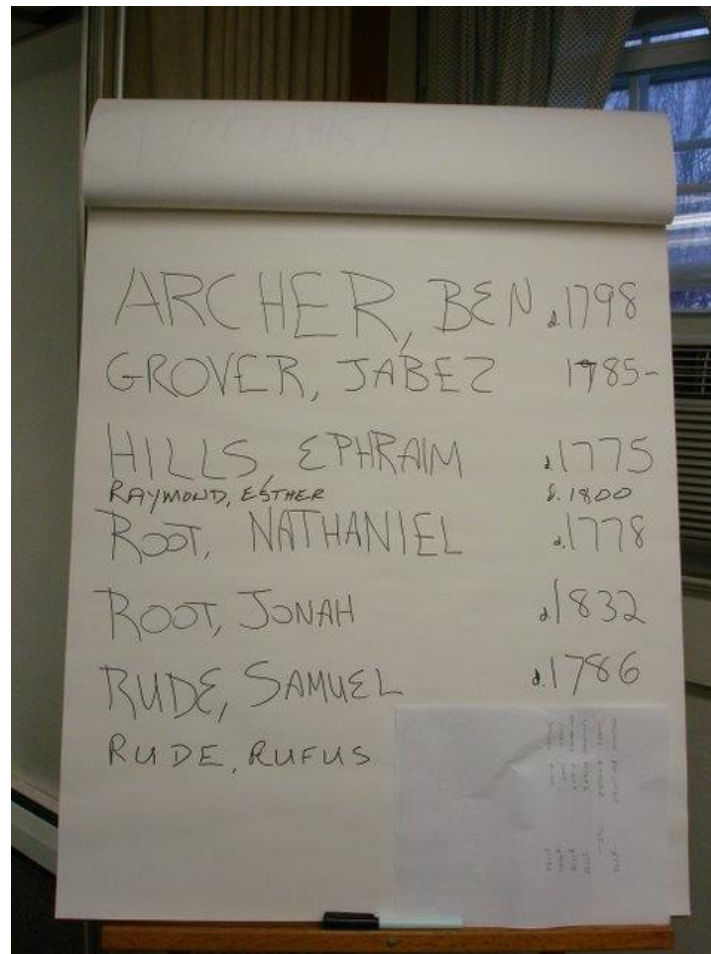 ARCHER, BEN d.1798
GROVER, JABEZ 1785-
HILLS, EPHRAIM d.1775
RAYMOND, ESTHER d.1800
ROOT, NATHANIEL d.1778
ROOT, JONAH d.1832
RUDE, SAMUEL d.1786
RUDE, RUFUS